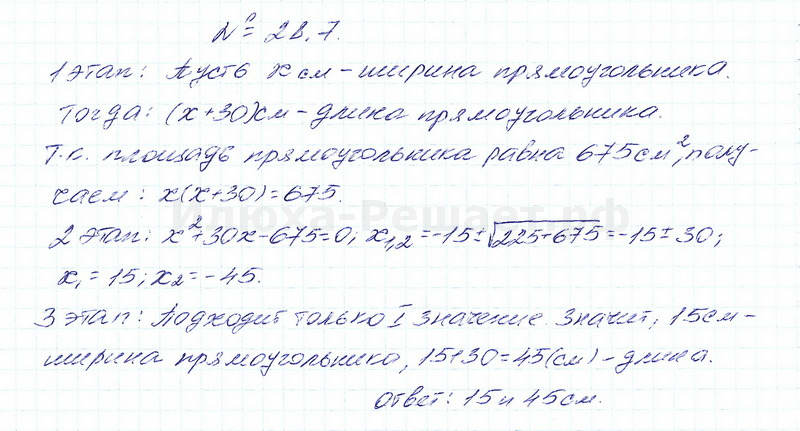 № 28.7.
1 этап: Пусть x см – ширина прямоугольника.
Тогда: (x+30)см – длина прямоугольника.
Т.к. площадь прямоугольника равна 675 см², полу-
чаем: x(x+30)=675.
Илюха-Решает.рф
2 этап: x²+30x-675=0; x₁,₂=-15±√225+675=-15±30;
x₁=15; x₂=-45.
3 этап: Подходит только I значение. Значит, 15см –
ширина прямоугольника, 15+30=45(см) – длина.
Ответ: 15 и 45см.